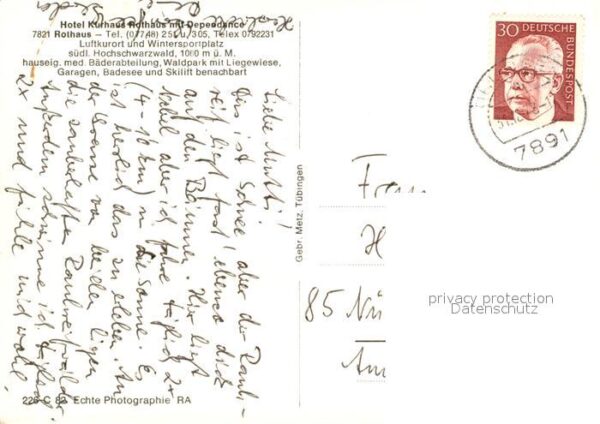 Hotel Kurhaus Rothaus mit Dependance
7821 Rothaus – Tel. (07748) 251 u. 305, Telex 0792231
Luftkurort und Wintersportplatz
südl. Hochschwarzwald, 1000 m ü. M.
hauseig. med. Bäderabteilung, Waldpark mit Liegewiese,
Garagen, Badesee und Skilift benachbart
Liebe Mutti!
Hier ist Schnee, aber der Rauh-
reif liegt fast ebenso dick
auf den Bäumen. Hier liegt
Nebel aber ich fahre täglich 2x
(4-10 km) in die Sonne. Es
ist herrlich das zu erleben. An
der Sonne
die zauberhaften Rauhreifwälder
Außerdem schwimme ich täglich
2x und fühle mich wohl.
Herzliche
Gebr. Metz, Tübingen
225 C 82 Echte Photographie RA
30 DEUTSCHE BUNDESPOST
7891
85 Nü
privacy protection
Datenschutz